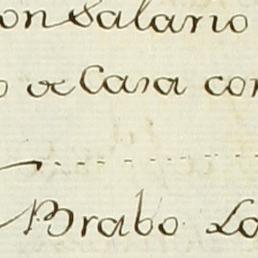 on Salario
o de Casa con
Brabo. Lo